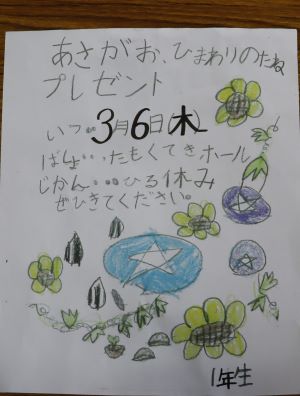 あさがお、ひまわりのたね
プレゼント
いつ…3月6日(木)
ばしょ…たもくてきホール
じかん…ひる休み
ぜひきてください。
1年生